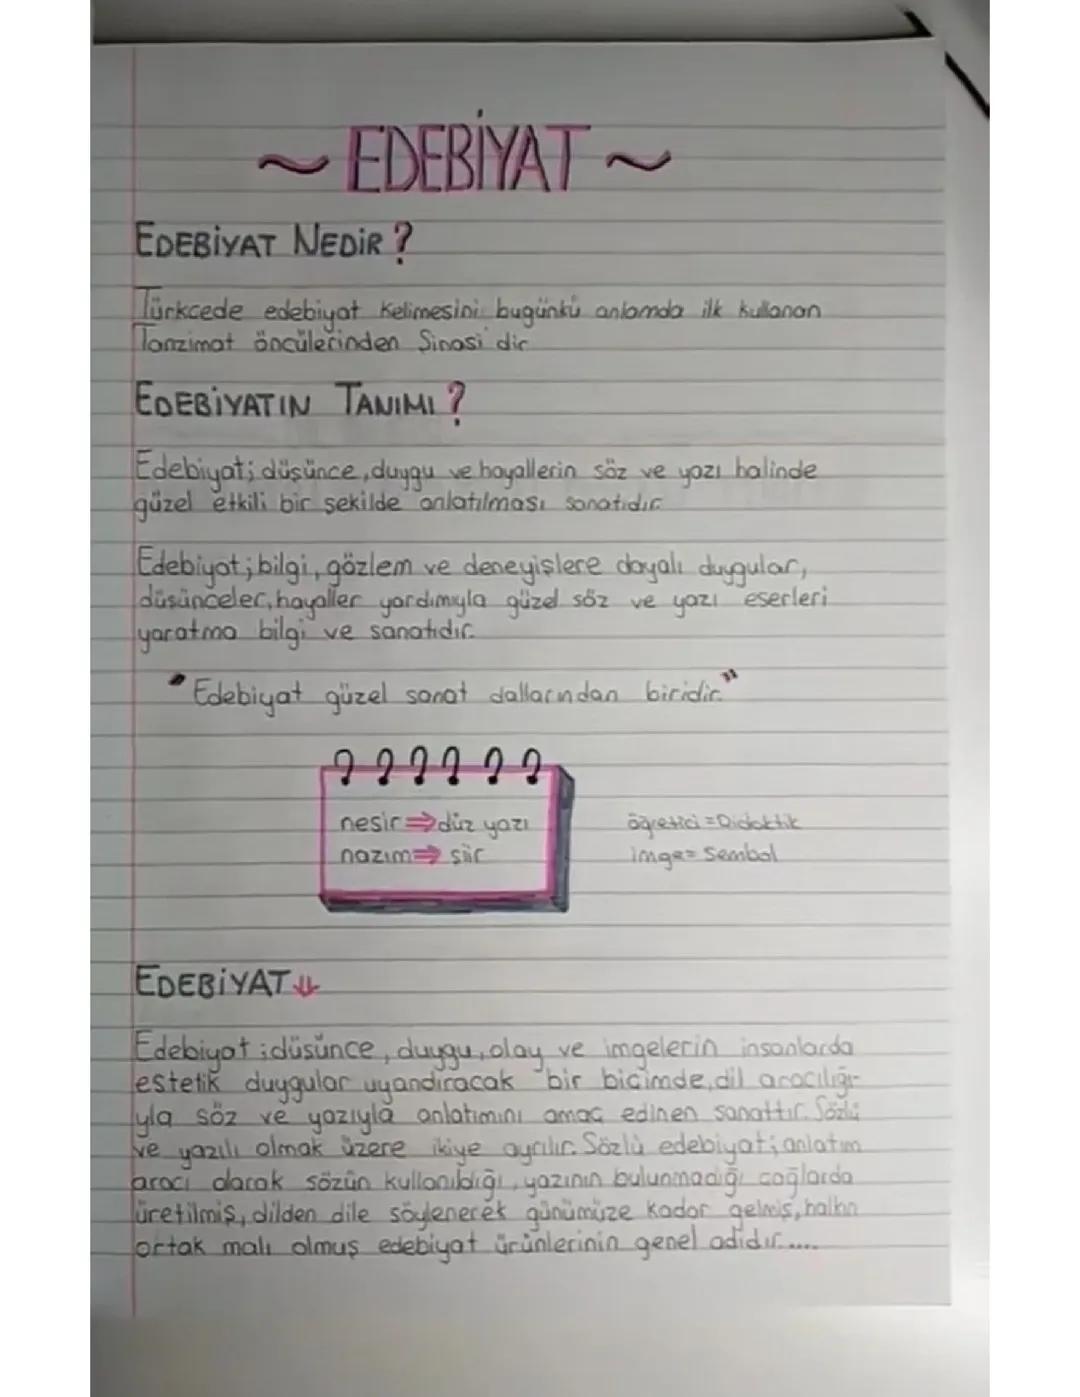 ~ EDEBİYAT ~
EDEBİYAT NEDİR ?
Türkcede edebiyat kelimesini bugünkü anlamda ilk kullanan
Tanzimat öncülerinden Şinasi'dir
EDEBİYATIN TANIMI ?
Edebiyat; düşünce, duygu ve hayallerin söz ve yazı halinde
güzel etkili bir şekilde anlatılması sanatıdır
Edebiyat; bilgi, gözlem ve deneyişlere dayalı duygular,
düşünceler, hayaller yardımıyla güzel söz ve yazı eserleri
yaratma bilgi ve sanatıdır.
"Edebiyat güzel sanat dallarından biridir."
nesir ⇒ düz yazı
nazım ⇒ şiir
öğretici = Didaktik
imge = Sembol
EDEBİYAT ⇓
Edebiyat ; düşünce, duygu, olay ve imgelerin insanlarda
estetik duygular uyandıracak bir biçimde, dil aracılığı-
yla söz ve yazıyla anlatımını amaç edinen sanattır. Sözlü
ve yazılı olmak üzere ikiye ayrılır. Sözlü edebiyat; anlatım
aracı olarak sözün kullanıldığı, yazının bulunmadığı çağlarda
üretilmiş, dilden dile söylenerek günümüze kadar gelmiş, halkın
ortak malı olmuş edebiyat ürünlerinin genel adıdır.....